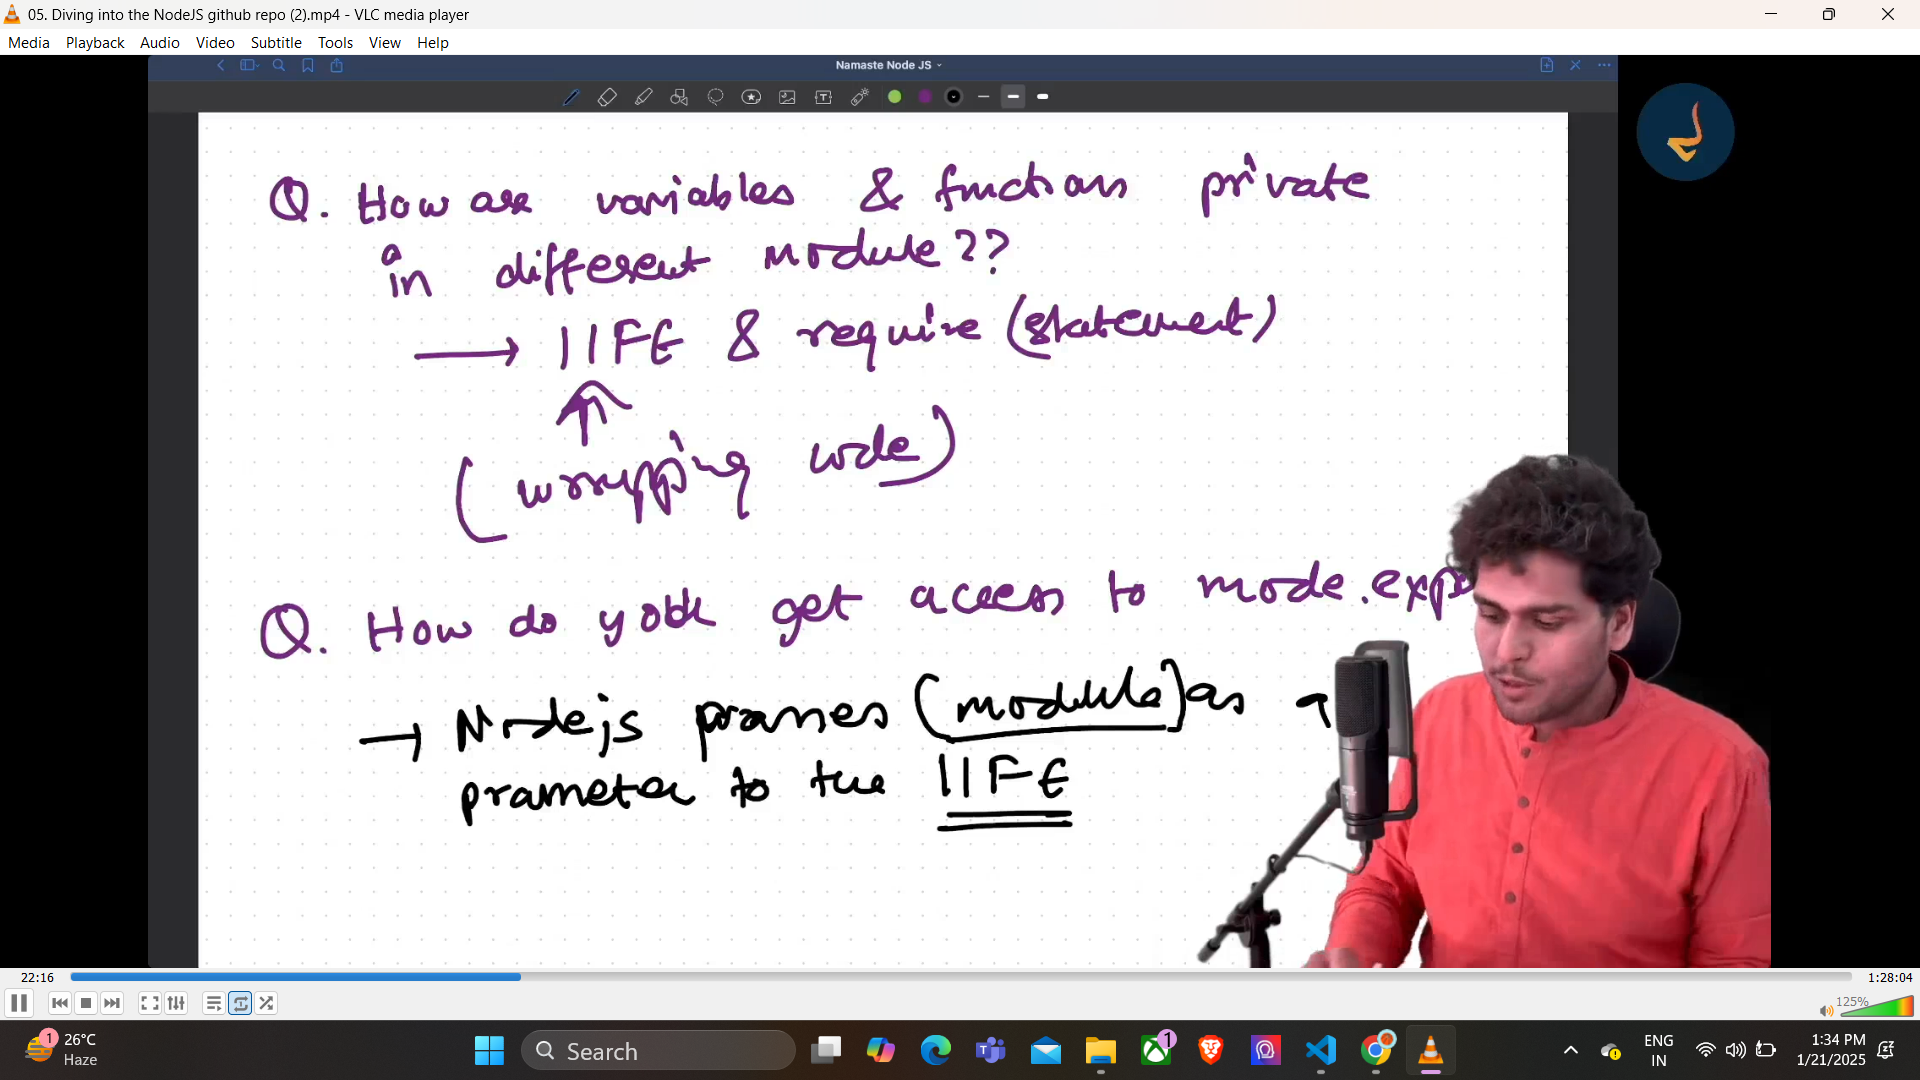 05. Diving into the NodeJS github repo (2).mp4 - VLC media player
Media Playback Audio Video Subtitle Tools View Help
Namaste Node JS
Q. How are variables & functions private
in different module??
→ IIFE & require (statement)
(wrapping code)
Q. How do you get access to mode.exp
→ Nodejs passes (module) as a
prameter to the IIFE
22:16
1:28:04
125%
1
26°C
Haze
Search
1
ENG
IN
1:34 PM
1/21/2025